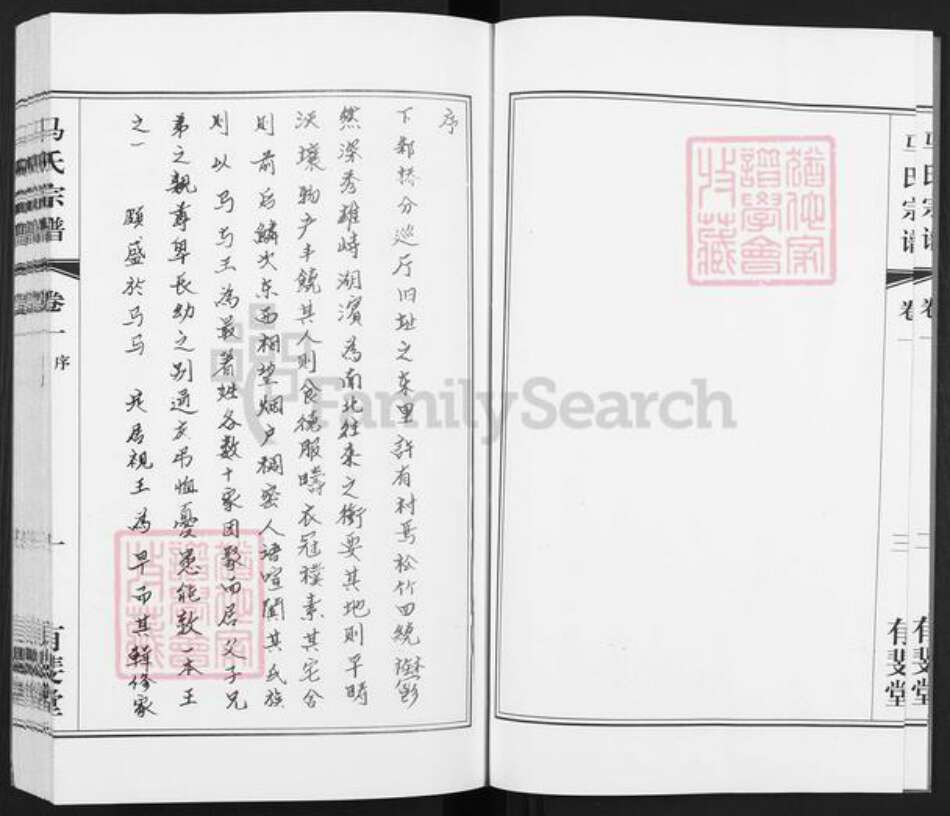 序
下邾桥分巡厅旧址之东里許有村焉松竹回繞
然深秀雄峙湖濱為南北往来之衝要其地则平畴
沃壤物产丰饒其人则食德服畴衣冠樸素其宅舍
则前后鳞次东西相望烟户稠密人语喧闐其氏族
则以马与王為最著姓各数十家团聚而居父子兄
弟之親尊卑長幼之别通友吊恤憂患能敦一本王
之一 颇盛於马马 居視王為早而其輯修家
马氏宗譜
卷一
序
一
有斐堂
猶他家譜學會收藏
猶他家譜學會收藏
马氏宗谱
卷一
二
有斐堂
FamilySearch